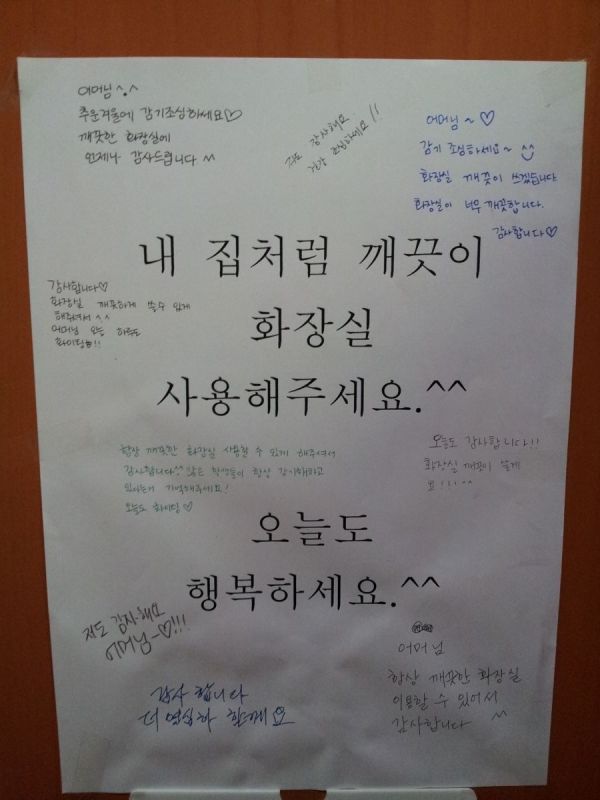 어머님 ^.^
추운겨울에 감기조심하세요♡
깨끗한 화장실에
언제나 감사드립니다 ^^
저도 감사해요
건강 조심하세요!!
어머님~ ♡
감기 조심하세요~
화장실 깨끗이 쓰겠습니다
화장실이 너무 깨끗합니다.
감사합니다♡
내 집처럼 깨끗이
화장실
사용해주세요.^^
감사합니다♡
화장실 깨끗하게 쓸수 있게
해주셔서 ^^
어머님 오늘 하루도
화이팅!!
항상 깨끗한 화장실 사용할 수 있게 해주셔서
감사합니다!^^ 많은 학생들이 항상 감사해하고
있다는거 기억해주세요!
오늘도 화이팅♡
오늘도 감사합니다!!
화장실 깨끗이 쓸게
요!!! ^^
오늘도
행복하세요.^^
저도 감사해요
어머님~♡!!!
감사 합니다
더 열심히 할께요
어머님
항상 깨끗한 화장실
이용할 수 있어서
감사합니다 ^^